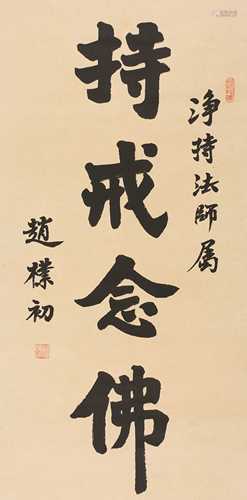 净持法師属
持戒念佛
趙樸初